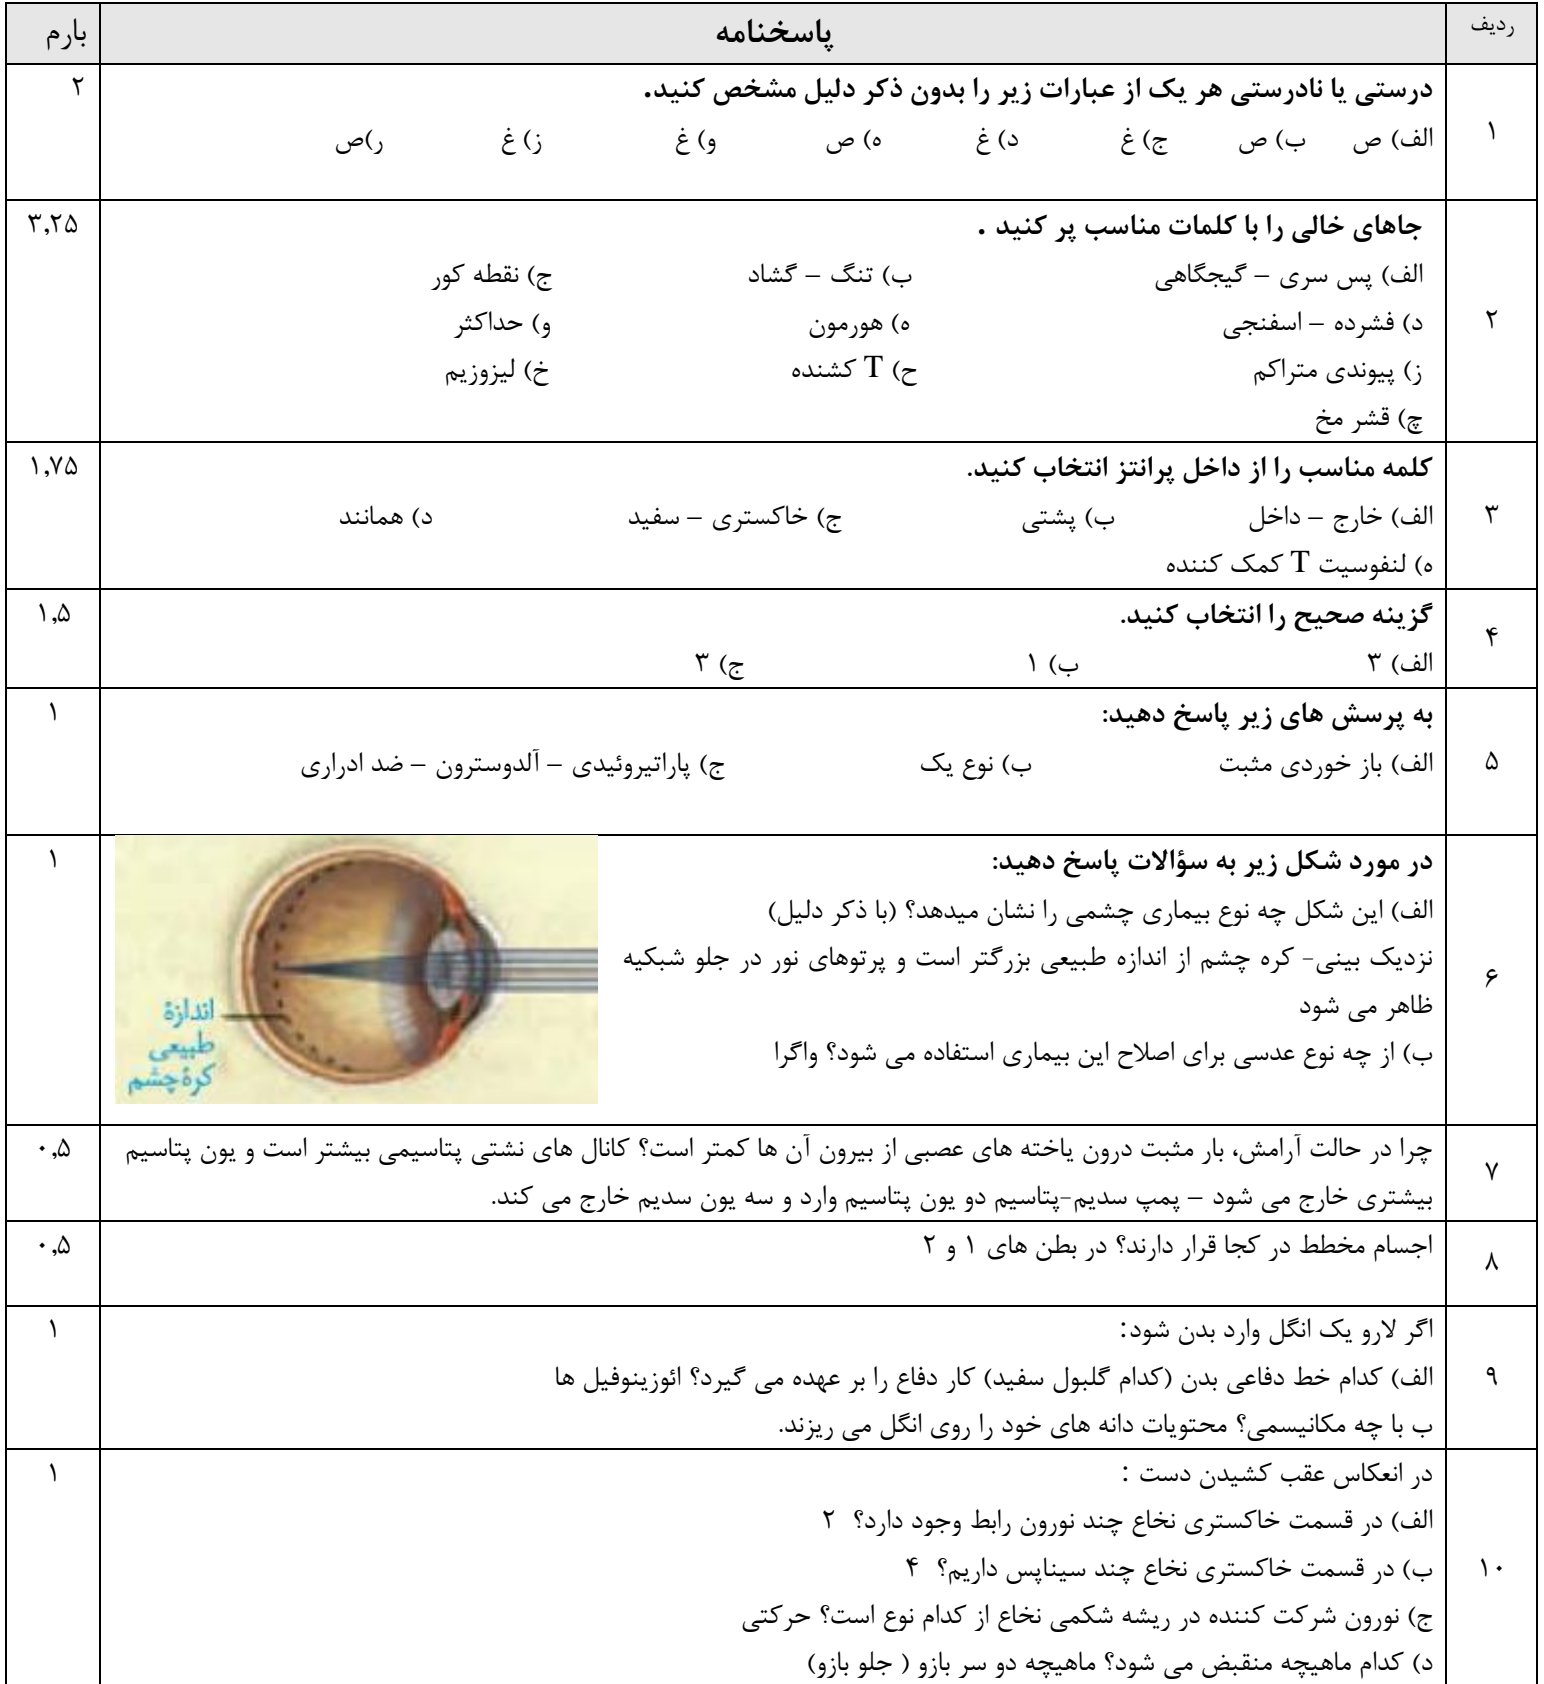 ردیف پاسخنامه بارم
درستی یا نادرستی هر یک از عبارات زیر را بدون ذکر دلیل مشخص کنید. ۲
۱ الف) ص ب) ص ج) غ د) غ ه) ص و) غ ز) غ ر)ص
جاهای خالی را با کلمات مناسب پر کنید . ۳,۲۵
الف) پس سری – گیجگاهی ب) تنگ – گشاد ج) نقطه کور
۲ د) فشرده – اسفنجی ه) هورمون و) حداکثر
ز) پیوندی متراکم ح) T کشنده خ) لیزوزیم
چ) قشر مخ
کلمه مناسب را از داخل پرانتز انتخاب کنید. ۱,۷۵
۳ الف) خارج – داخل ب) پشتی ج) خاکستری – سفید د) همانند
ه) لنفوسیت T کمک کننده
۴ گزینه صحیح را انتخاب کنید. ۱,۵
الف) ۳ ب) ۱ ج) ۳
به پرسش های زیر پاسخ دهید: ۱
۵ الف) باز خوردی مثبت ب) نوع یک ج) پاراتیروئیدی – آلدوسترون – ضد ادراری
در مورد شکل زیر به سؤالات پاسخ دهید: ۱
الف) این شکل چه نوع بیماری چشمی را نشان میدهد؟ (با ذکر دلیل)
نزدیک بینی- کره چشم از اندازه طبیعی بزرگتر است و پرتوهای نور در جلو شبکیه
۶ ظاهر می شود
ب) از چه نوع عدسی برای اصلاح این بیماری استفاده می شود؟ واگرا
اندازۀ
طبیعی
کرۀچشم
۷ چرا در حالت آرامش، بار مثبت درون یاخته های عصبی از بیرون آن ها کمتر است؟ کانال های نشتی پتاسیمی بیشتر است و یون پتاسیم ۰,۵
بیشتری خارج می شود – پمپ سدیم-پتاسیم دو یون پتاسیم وارد و سه یون سدیم خارج می کند.
۸ اجسام مخطط در کجا قرار دارند؟ در بطن های ۱ و ۲ ۰,۵
اگر لارو یک انگل وارد بدن شود: ۱
۹ الف) کدام خط دفاعی بدن (کدام گلبول سفید) کار دفاع را بر عهده می گیرد؟ ائوزینوفیل ها
ب با چه مکانیسمی؟ محتویات دانه های خود را روی انگل می ریزند.
در انعکاس عقب کشیدن دست : ۱
الف) در قسمت خاکستری نخاع چند نورون رابط وجود دارد؟ ۲
۱۰ ب) در قسمت خاکستری نخاع چند سیناپس داریم؟ ۴
ج) نورون شرکت کننده در ریشه شکمی نخاع از کدام نوع است؟ حرکتی
د) کدام ماهیچه منقبض می شود؟ ماهیچه دو سر بازو ( جلو بازو)